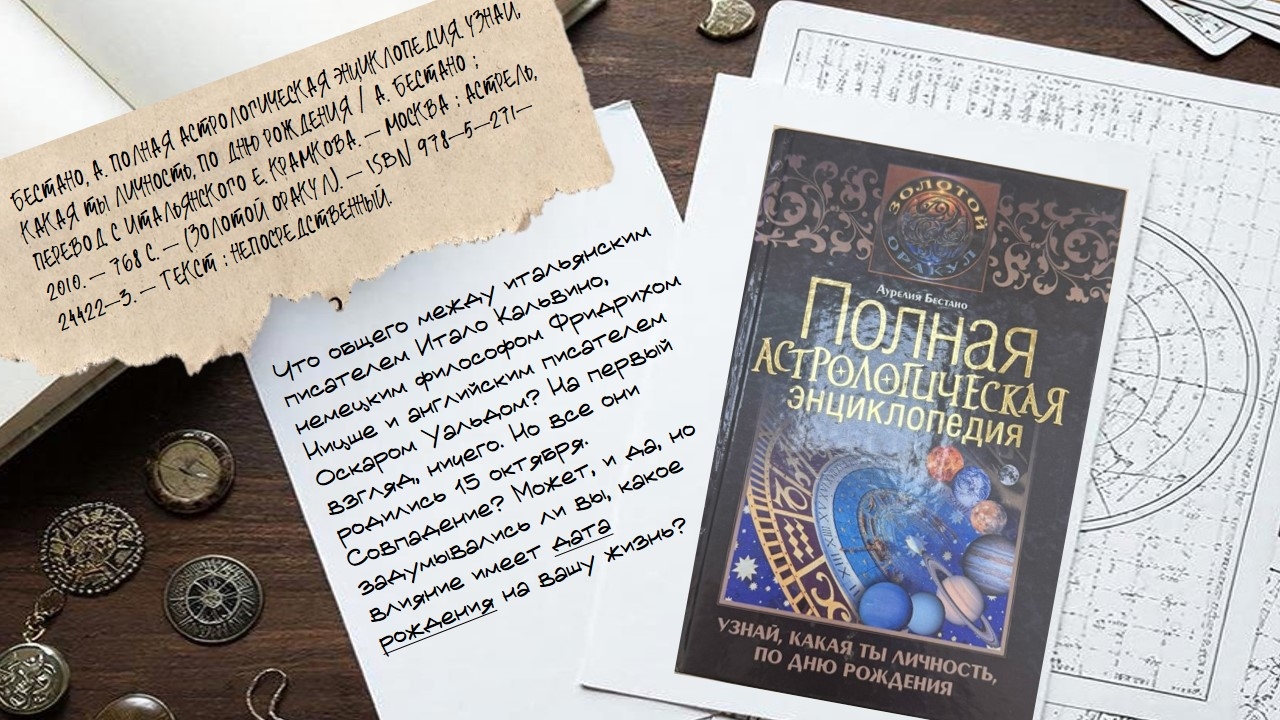 БЕСТАНО, А. ПОЛНАЯ АСТРОЛОГИЧЕСКАЯ ЭНЦИКЛОПЕДИЯ УЗНАЙ,
КАКАЯ ТЫ ЛИЧНОСТЬ, ПО ДНЮ РОЖДЕНИЯ / А. БЕСТАНО ;
ПЕРЕВОД С ИТАЛЬЯНСКОГО Е. КРАМКОВА. – МОСКВА : АСТРЕЛЬ,
2010. – 768 С. – (ЗОЛОТОЙ ОРАКУЛ). – ISBN 978–5–271–
24422–3. – ТЕКСТ : НЕПОСРЕДСТВЕННЫЙ.
Что общего между итальянским
писателем Итало Кальвино,
немецким философом Фридрихом
Ницше и английским писателем
Оскаром Уальдом? На первый
взгляд, ничего. Но все они
родились 15 октября.
Совпадение? Может, и да, но
задумывались ли вы, какое
влияние имеет дата
рождения на вашу жизнь?
ЗОЛОТОЙ
ОРАКУЛ
Аурелия Бестано
Полная
АСТРОЛОГИЧЕСКАЯ
энциклопедия
УЗНАЙ, КАКАЯ ТЫ ЛИЧНОСТЬ,
ПО ДНЮ РОЖДЕНИЯ